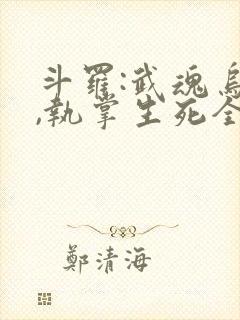 斗羅:武魂
,執掌生死
鄭清海